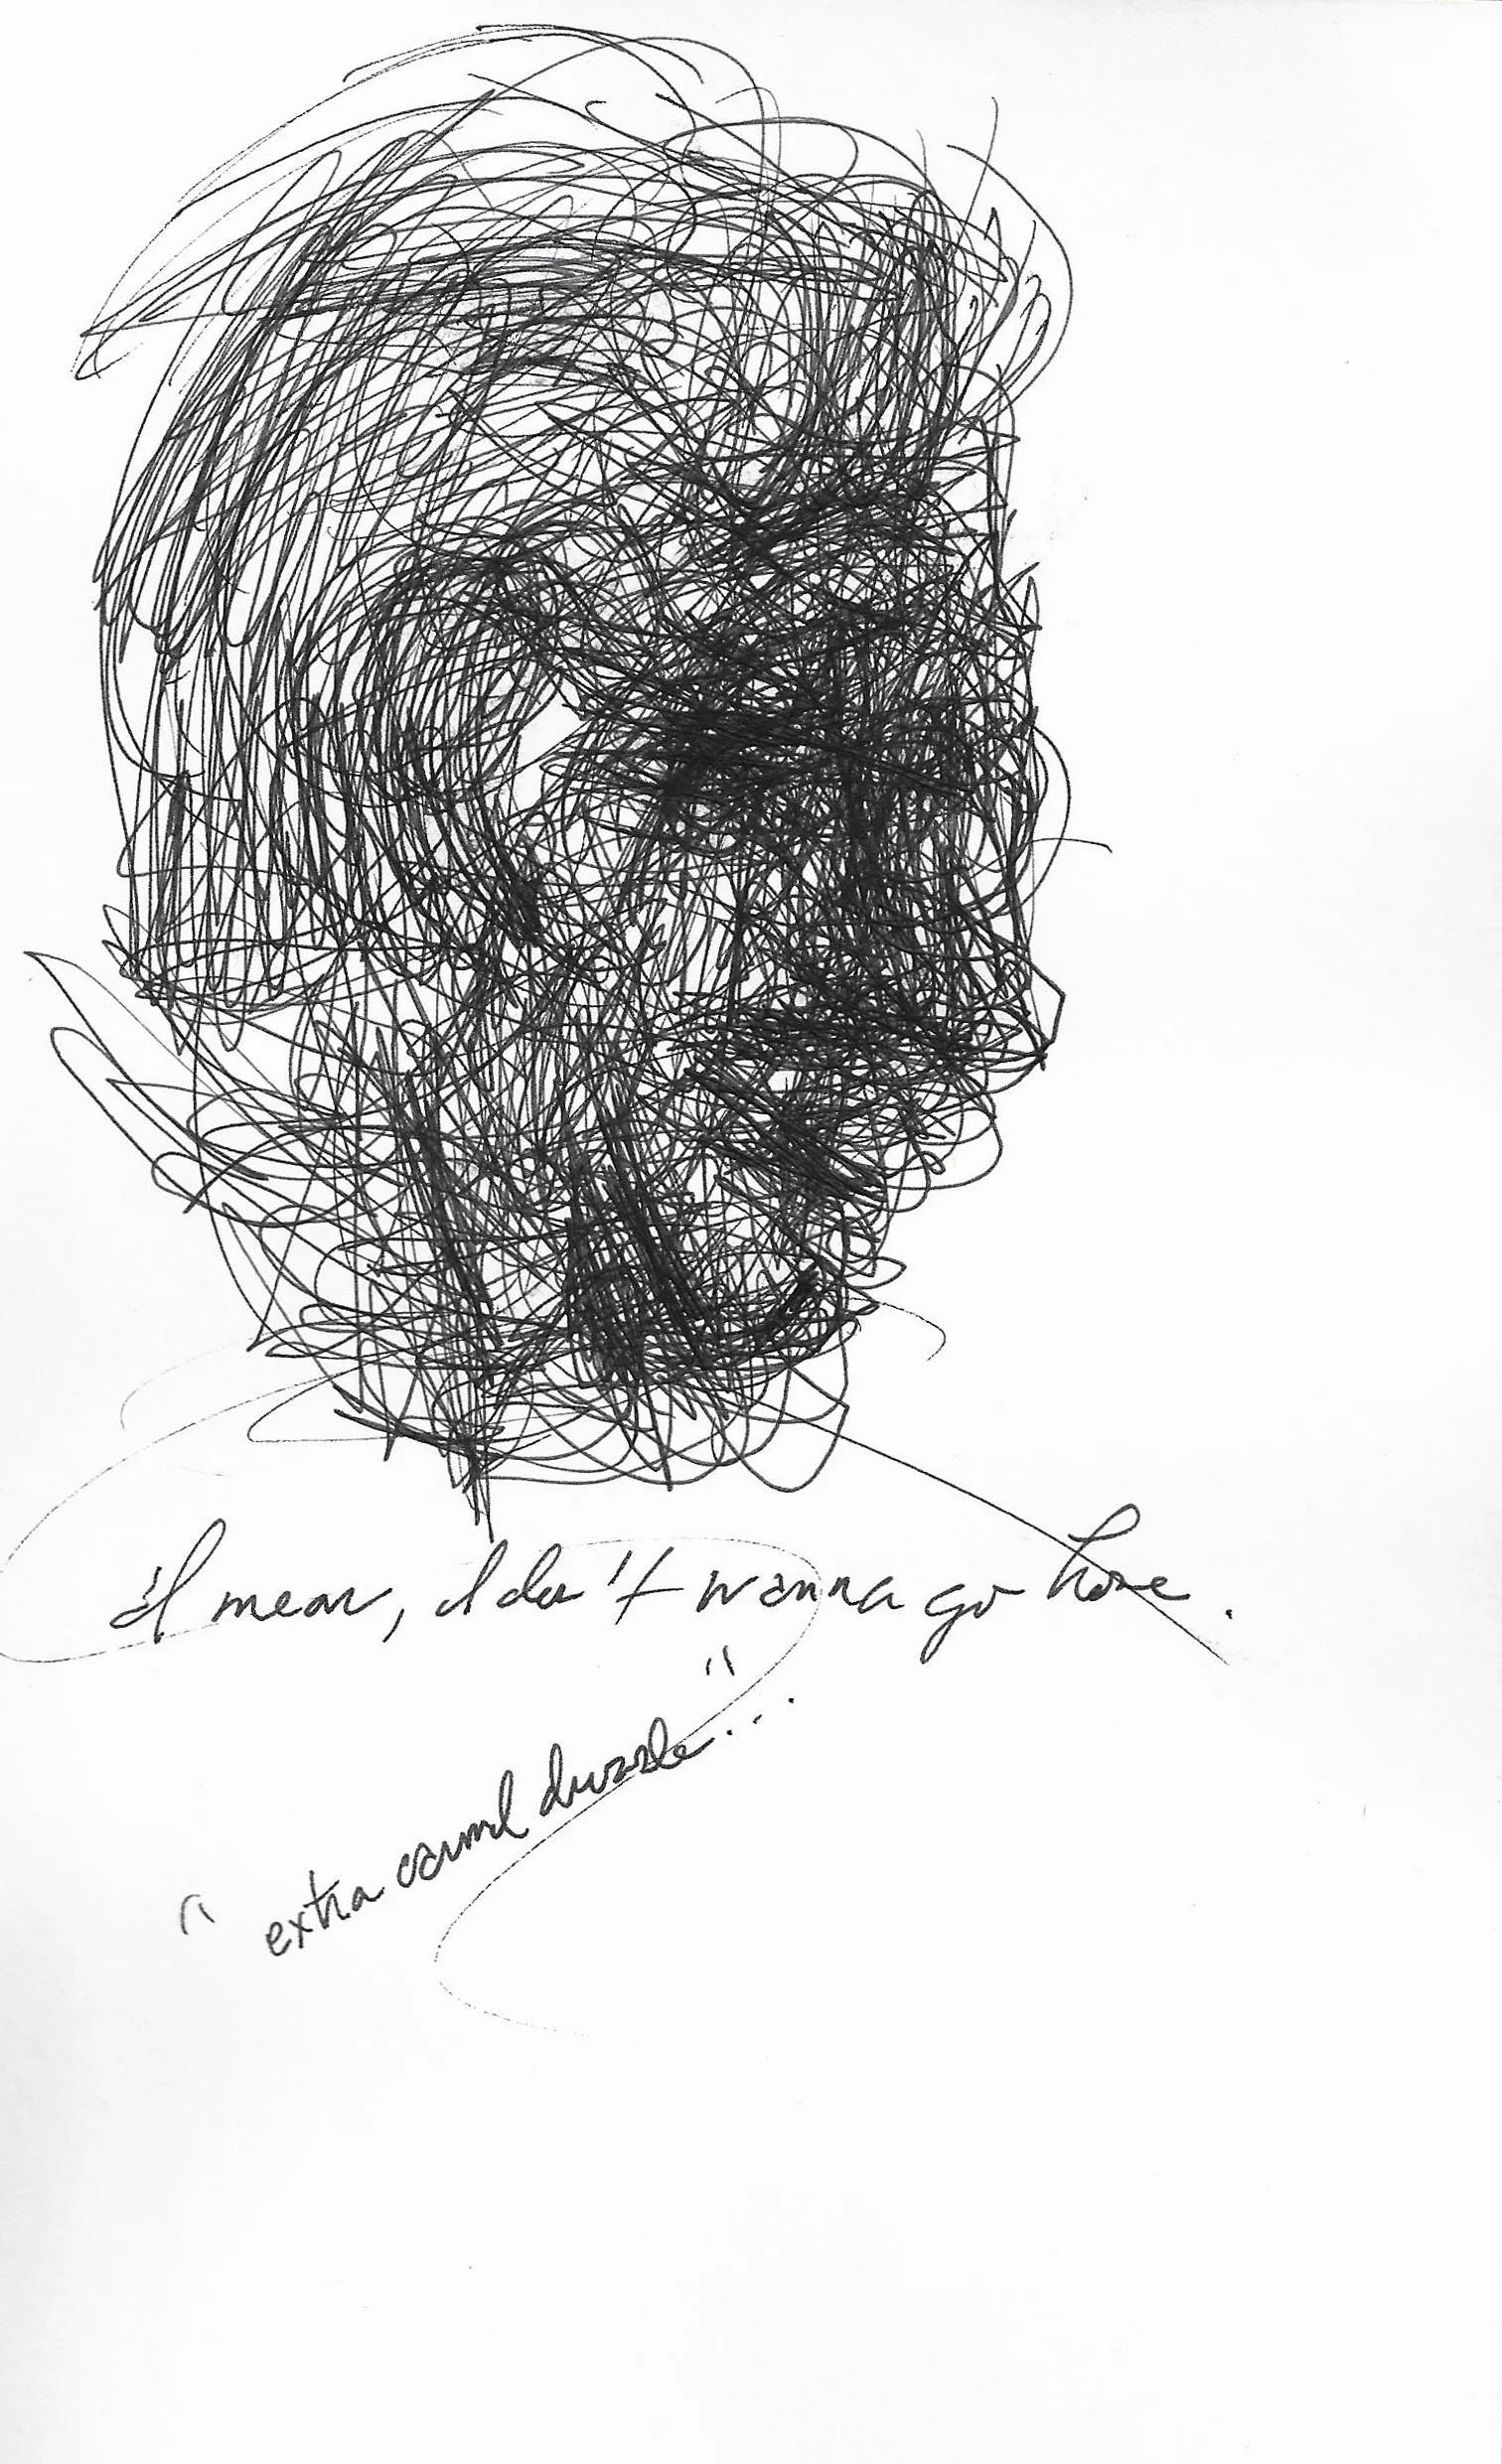 "I mean, I don't wanna go home.
"extra caramel drizzle..."